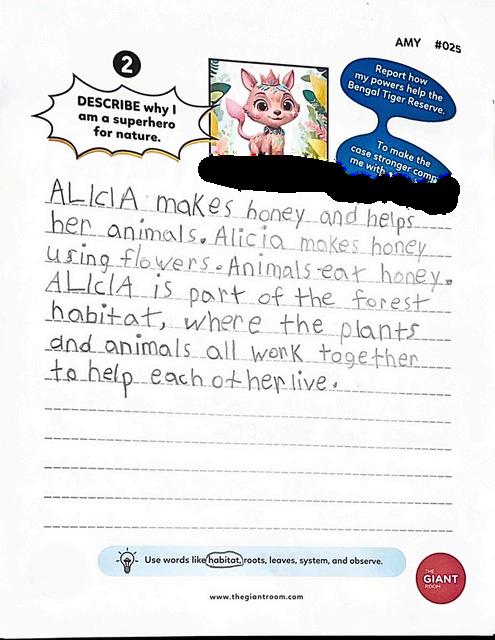 AMY #025
2
DESCRIBE why I
am a superhero
for nature.
Report how
my powers help the
Bengal Tiger Reserve.
To make the
case stronger
me with
ALIcIA makes honey and helps
her animals. Alicia makes honey
using flowers. Animals eat honey.
ALIcIA is part of the forest
habitat, where the plants
and animals all work together
to help each other live.
Use words like habitat, roots, leaves, system, and observe.
THE
GIANT
ROOM
www.thegiantroom.com